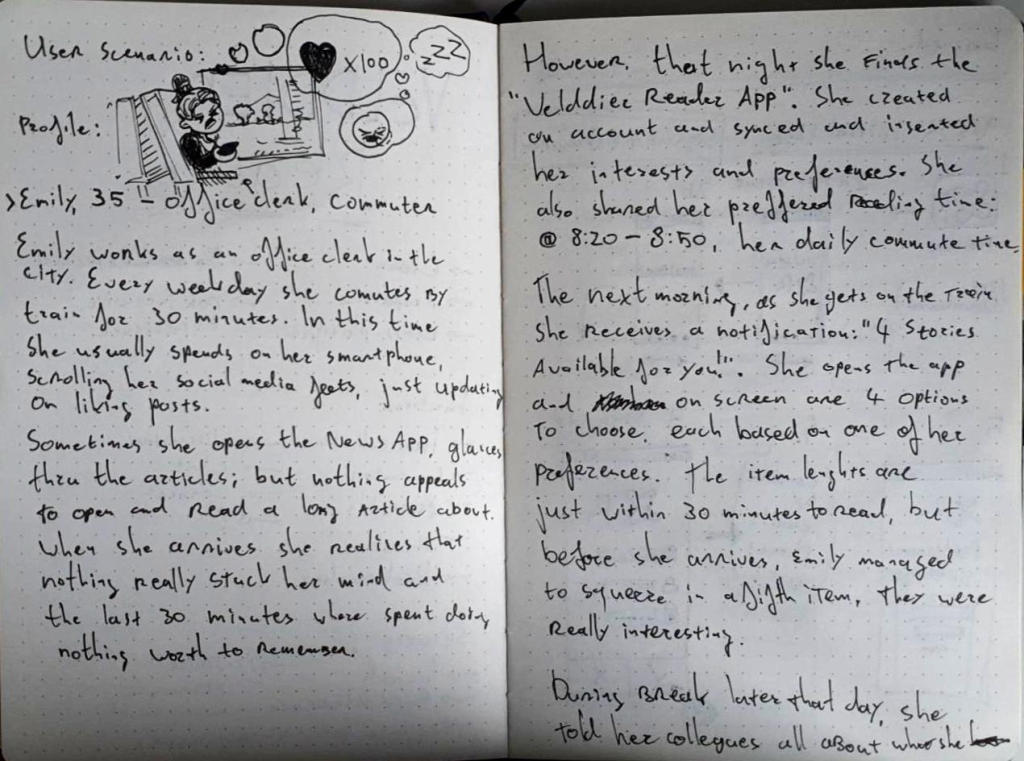 User Scenario:
x100
zzz
Profile:
>Emily, 35 – office clerk, commuter
Emily works as an office clerk in the
city. Every weekday she comutes by
train for 30 minutes. In this time
she usually spends on her smartphone,
scrolling her social media feets, just updating
on liking posts.
Sometimes she opens the News App, glances
thru the articles; but nothing appeals
to open and read a long article about.
When she arrives she realizes that
nothing really stuck her mind and
the last 30 minutes where spent doing
nothing worth to remember.
However, that night she finds the
" Reader App". She created
an account and synced and inserted
her interests and preferenses. She
also shared her preffered reading time:
@ 8:20 – 8:50, her daily commute time
The next morning, as she gets on the train
she receives a notification: "4 Stories
Available for you!". She opens the app
and on screen are 4 options
to choose, each based on one of her
preferences. The item lenghts are
just within 30 minutes to read, but
before she arrives, Emily managed
to squeeze in a fifth item, they were
really interesting.
During break later that day, she
told her collegues all about she